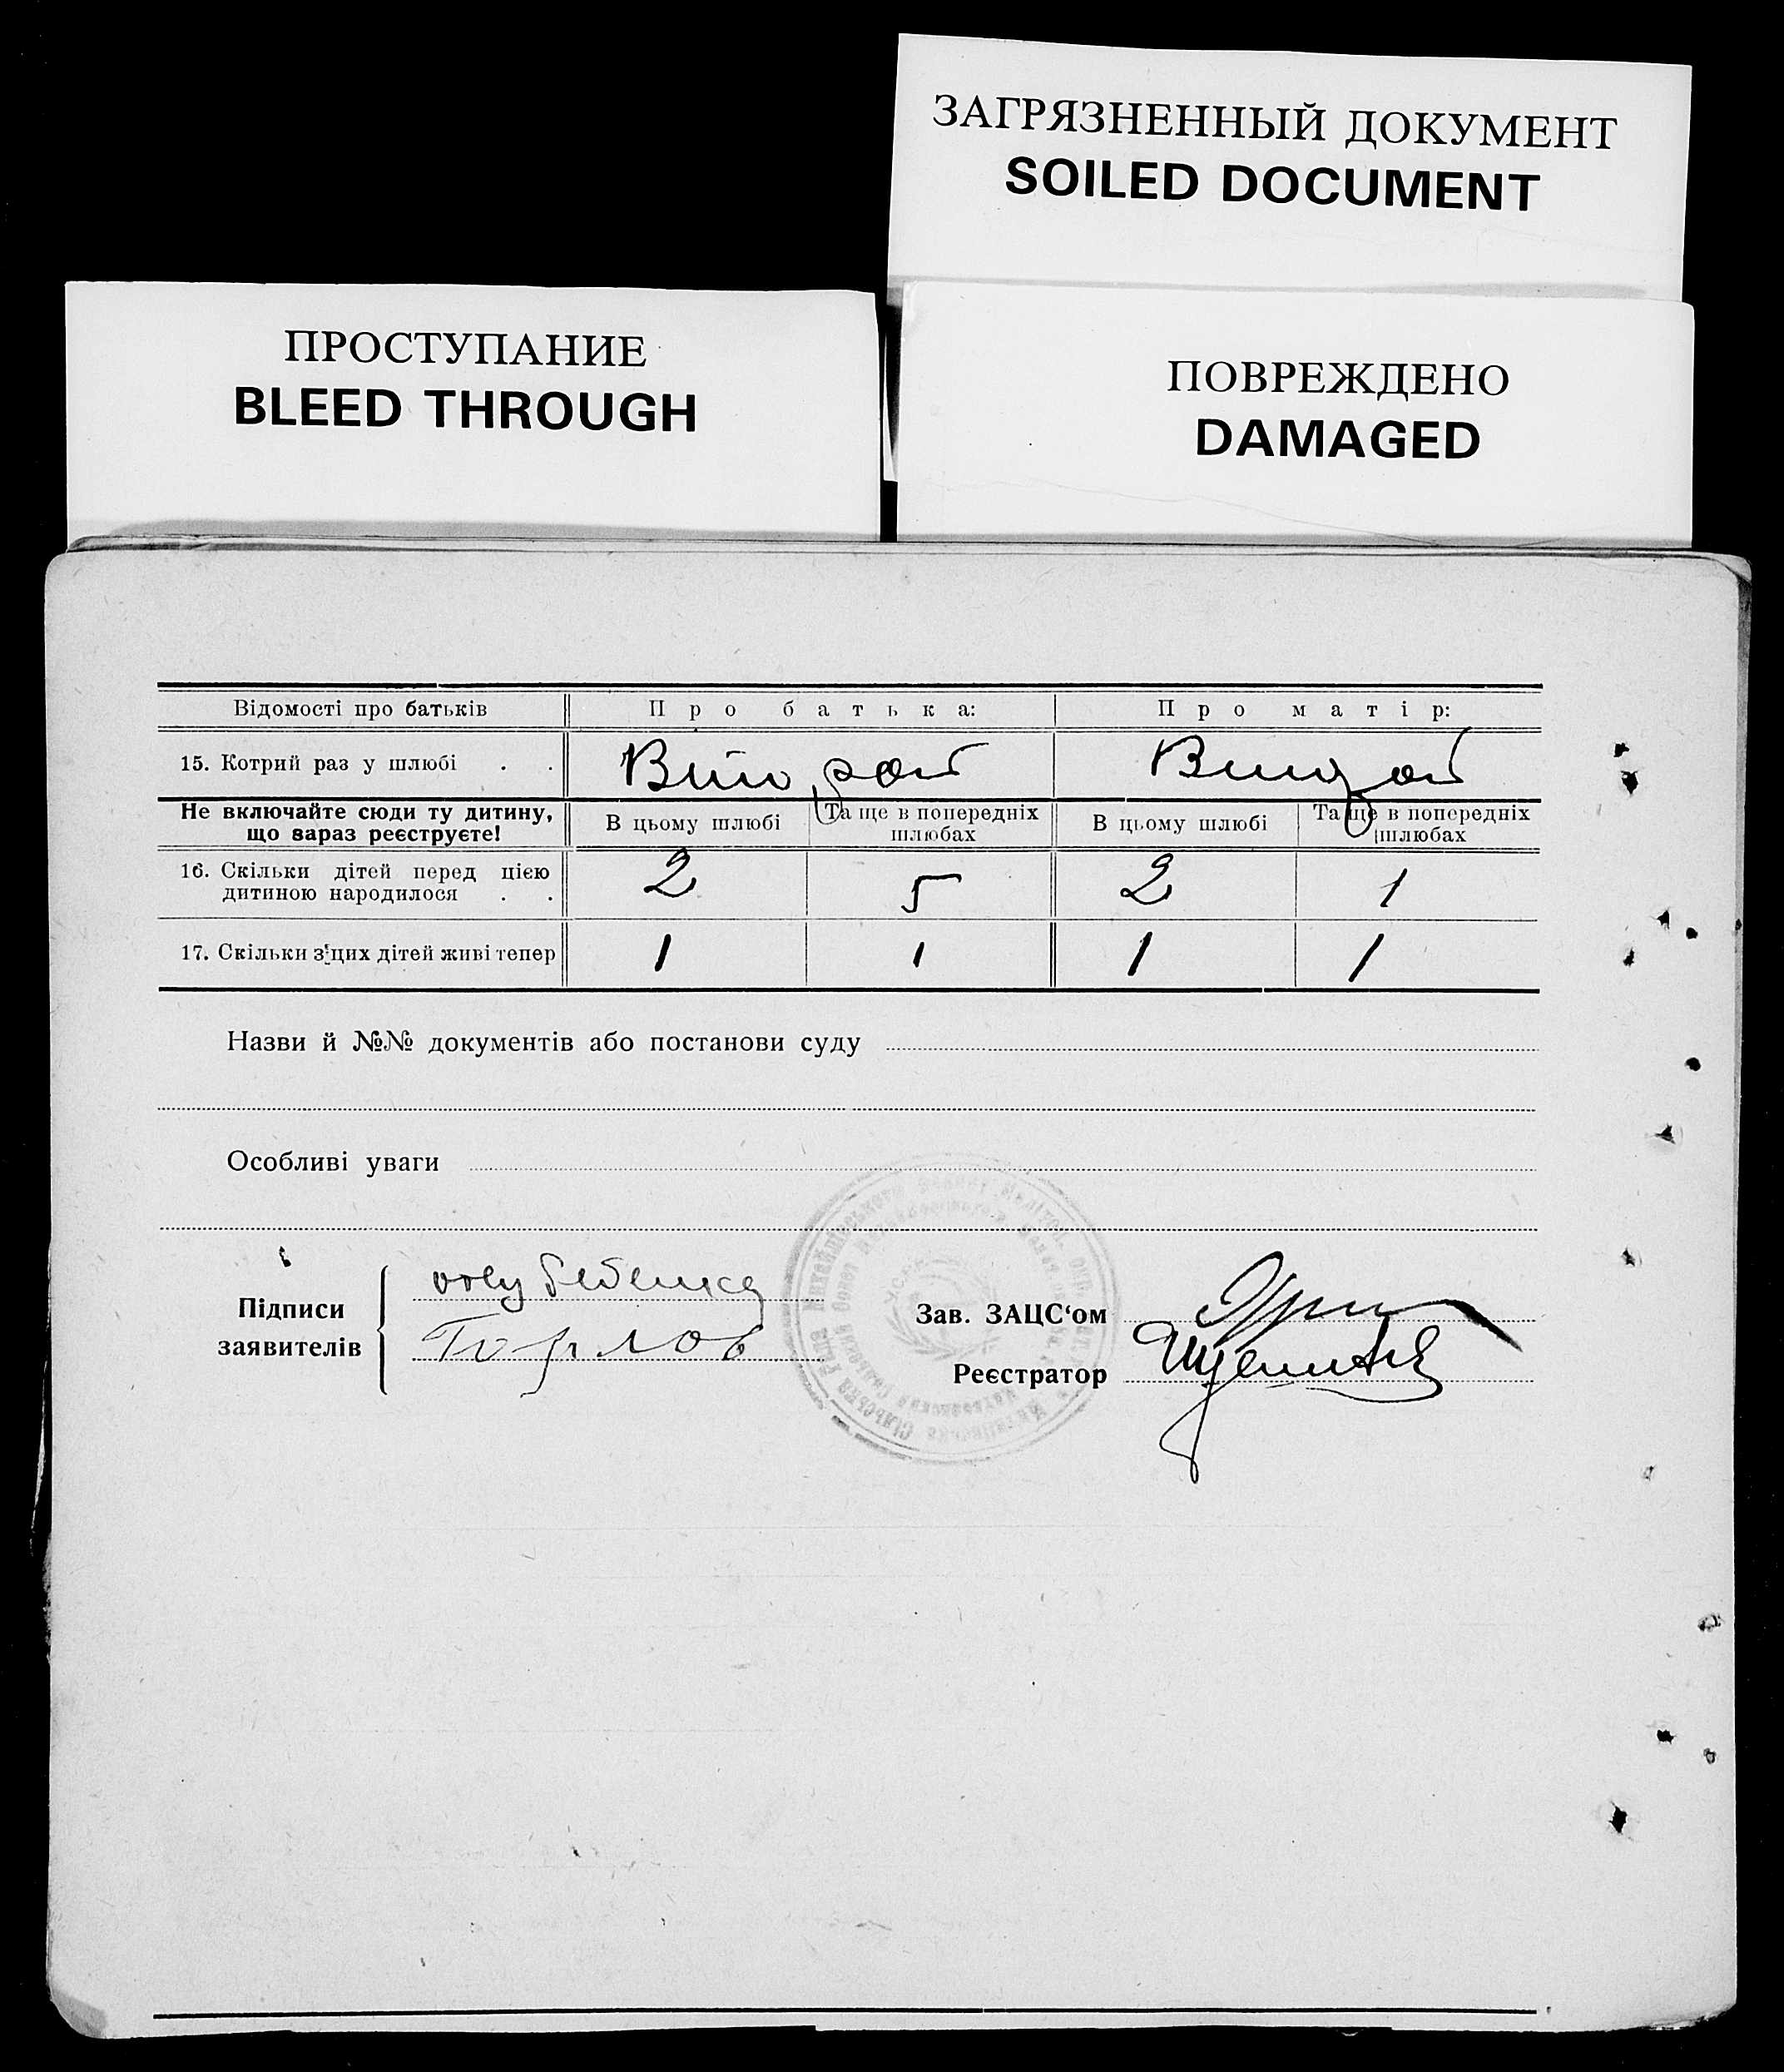 ЗАГРЯЗНЕННЫЙ ДОКУМЕНТ
SOILED DOCUMENT
ПРОСТУПАНИЕ
BLEED THROUGH
ПОВРЕЖДЕНО
DAMAGED
Відомості про батьків Про батька: Про матір:
15. Котрий раз у шлюбі . . Второй Второй
Не включайте сюди ту дитину, що вараз реєструєте! В цьому шлюбі Та ще в попередніх шлюбах В цьому шлюбі Та ще в попередніх шлюбах
16. Скільки дітей перед цією
дитиною народилося . . 2 5 2 1
17. Скільки з цих дітей живі тепер 1 1 1 1
Назви й №№ документів або постанови суду
Особливі уваги
Підписи
заявителів
Горлов
Зав. ЗАЦС‘ом
Реєстратор